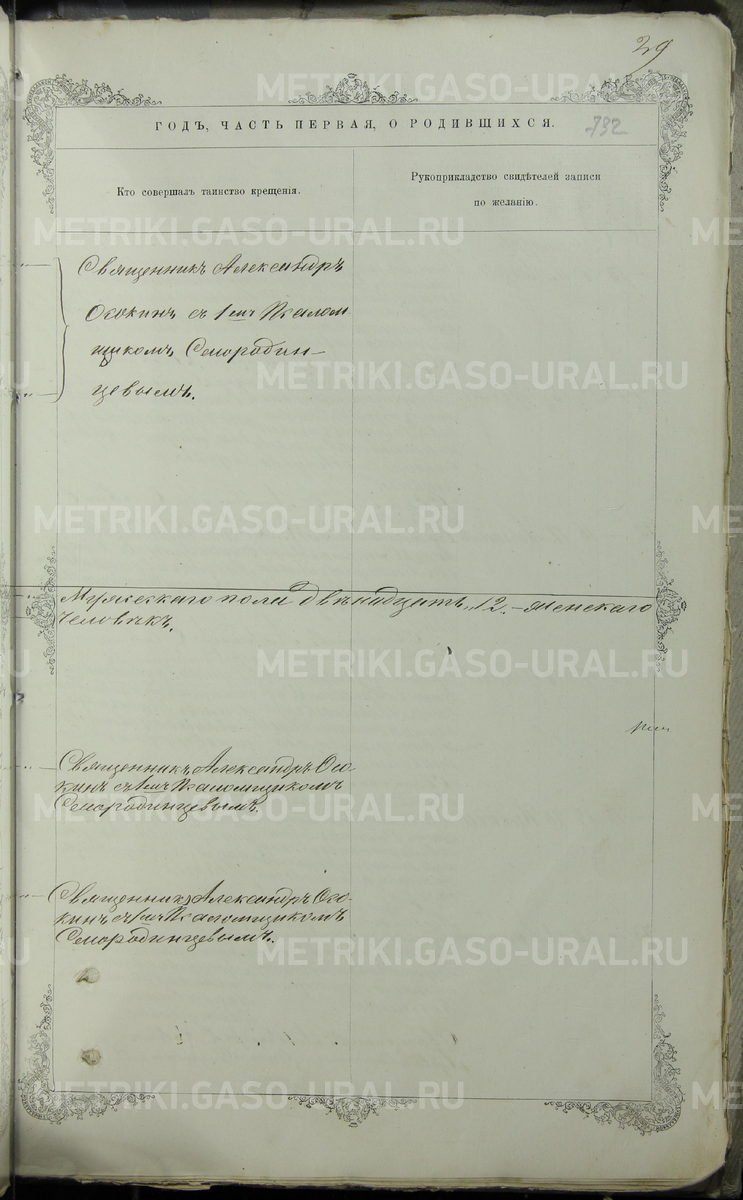 29
ГОДЪ, ЧАСТЬ ПЕРВАЯ, О РОДИВШИХСЯ.
732
Кто совершалъ таинство крещенія.
Рукоприкладство свидѣтелей записи
по желанію.
Священникъ Александръ
Осокинъ съ 1мъ Псалом
щикомъ Смородин-
цевымъ.
Мужескаго пола двѣнадцать, 12. - Женскаго
человѣкъ.
Священникъ Александръ Осо-
кинъ съ 1мъ Псаломщикомъ
Смородинцевымъ.
Священникъ Александръ Осо-
кинъ съ 1мъ Псаломщикомъ
Смородинцевымъ.
METRIKI.GASO-URAL.RU